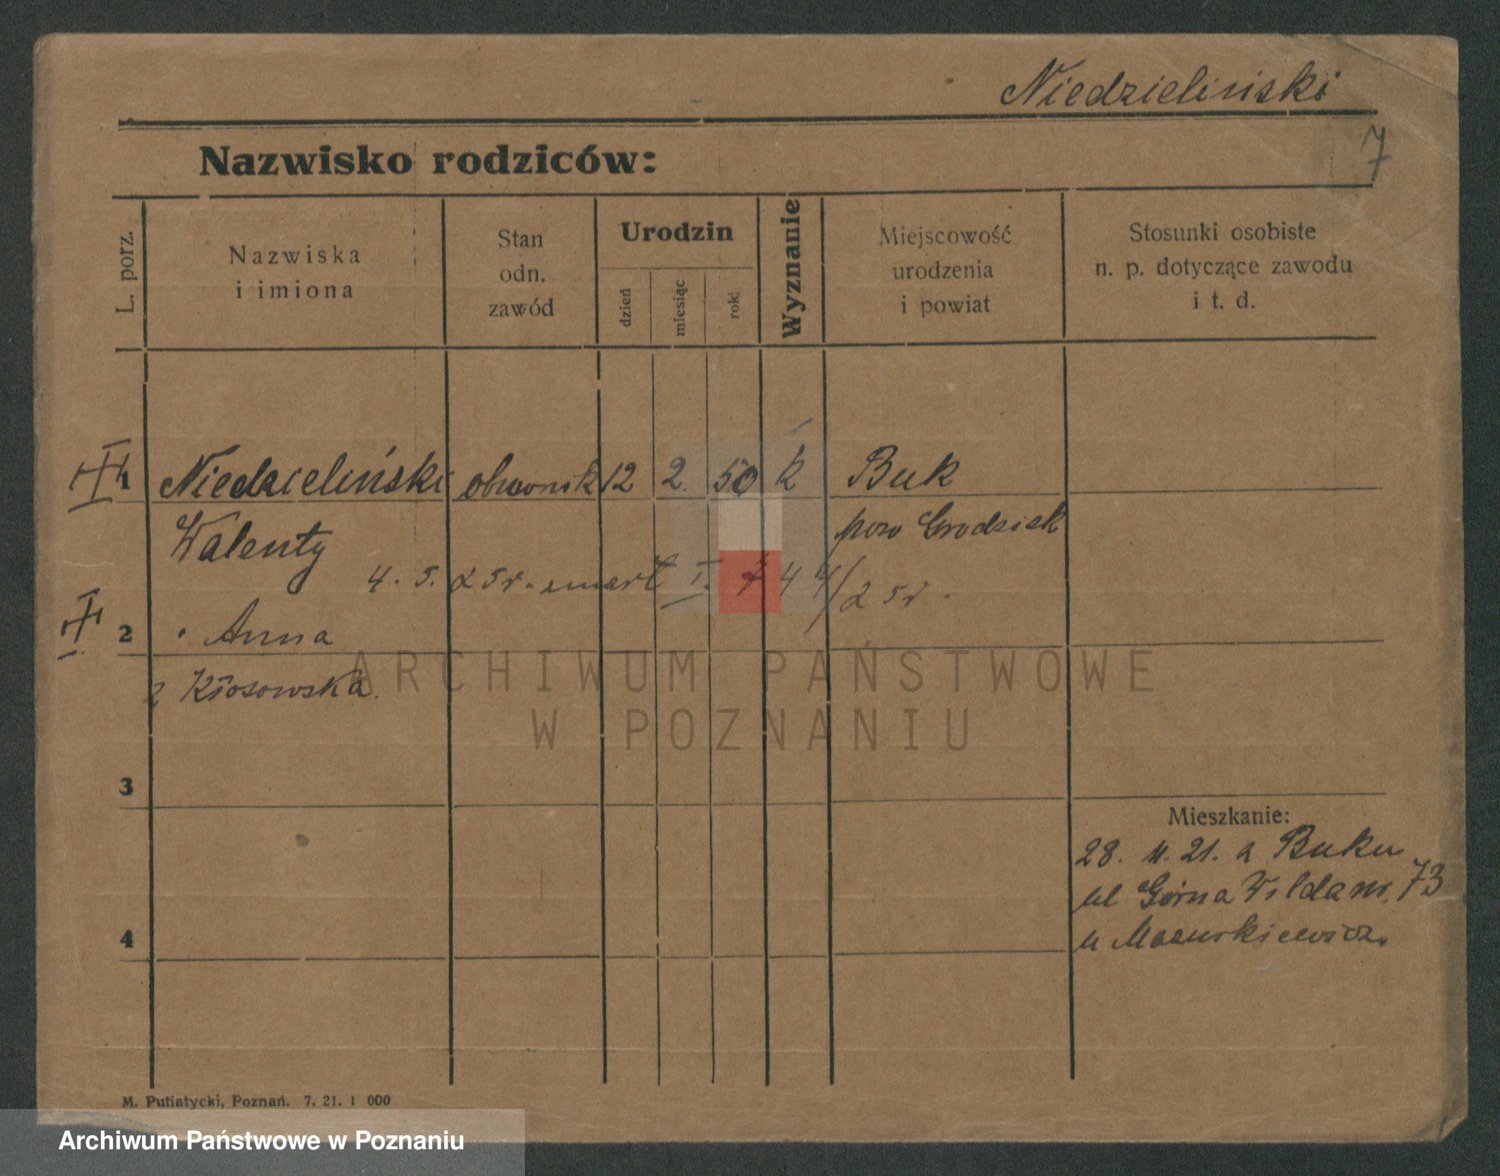 Niedzieliński
7
Nazwisko rodziców:
L. porz.
Nazwiska
i imiona
Stan
odn.
zawód
Urodzin
dzień
miesiąc
rok
Wyznanie
Miejscowość
urodzenia
i powiat
Stosunki osobiste
n. p. dotyczące zawodu
i t. d.
1 Niedzieliński 12 2. 50 k Buk
Walenty pow Grodzisk
4. 5. 25 r. umarł I. 7
2 Anna
z Kłosowska.
3
Mieszkanie:
28. 11. 21. z Buku
ul Górna Wilda nr. 73
u Mazurkiewicz.
4
M. Putiatycki, Poznań. 7. 21. 1 000
ARCHIWUM PAŃSTWOWE
W POZNANIU
Archiwum Państwowe w Poznaniu